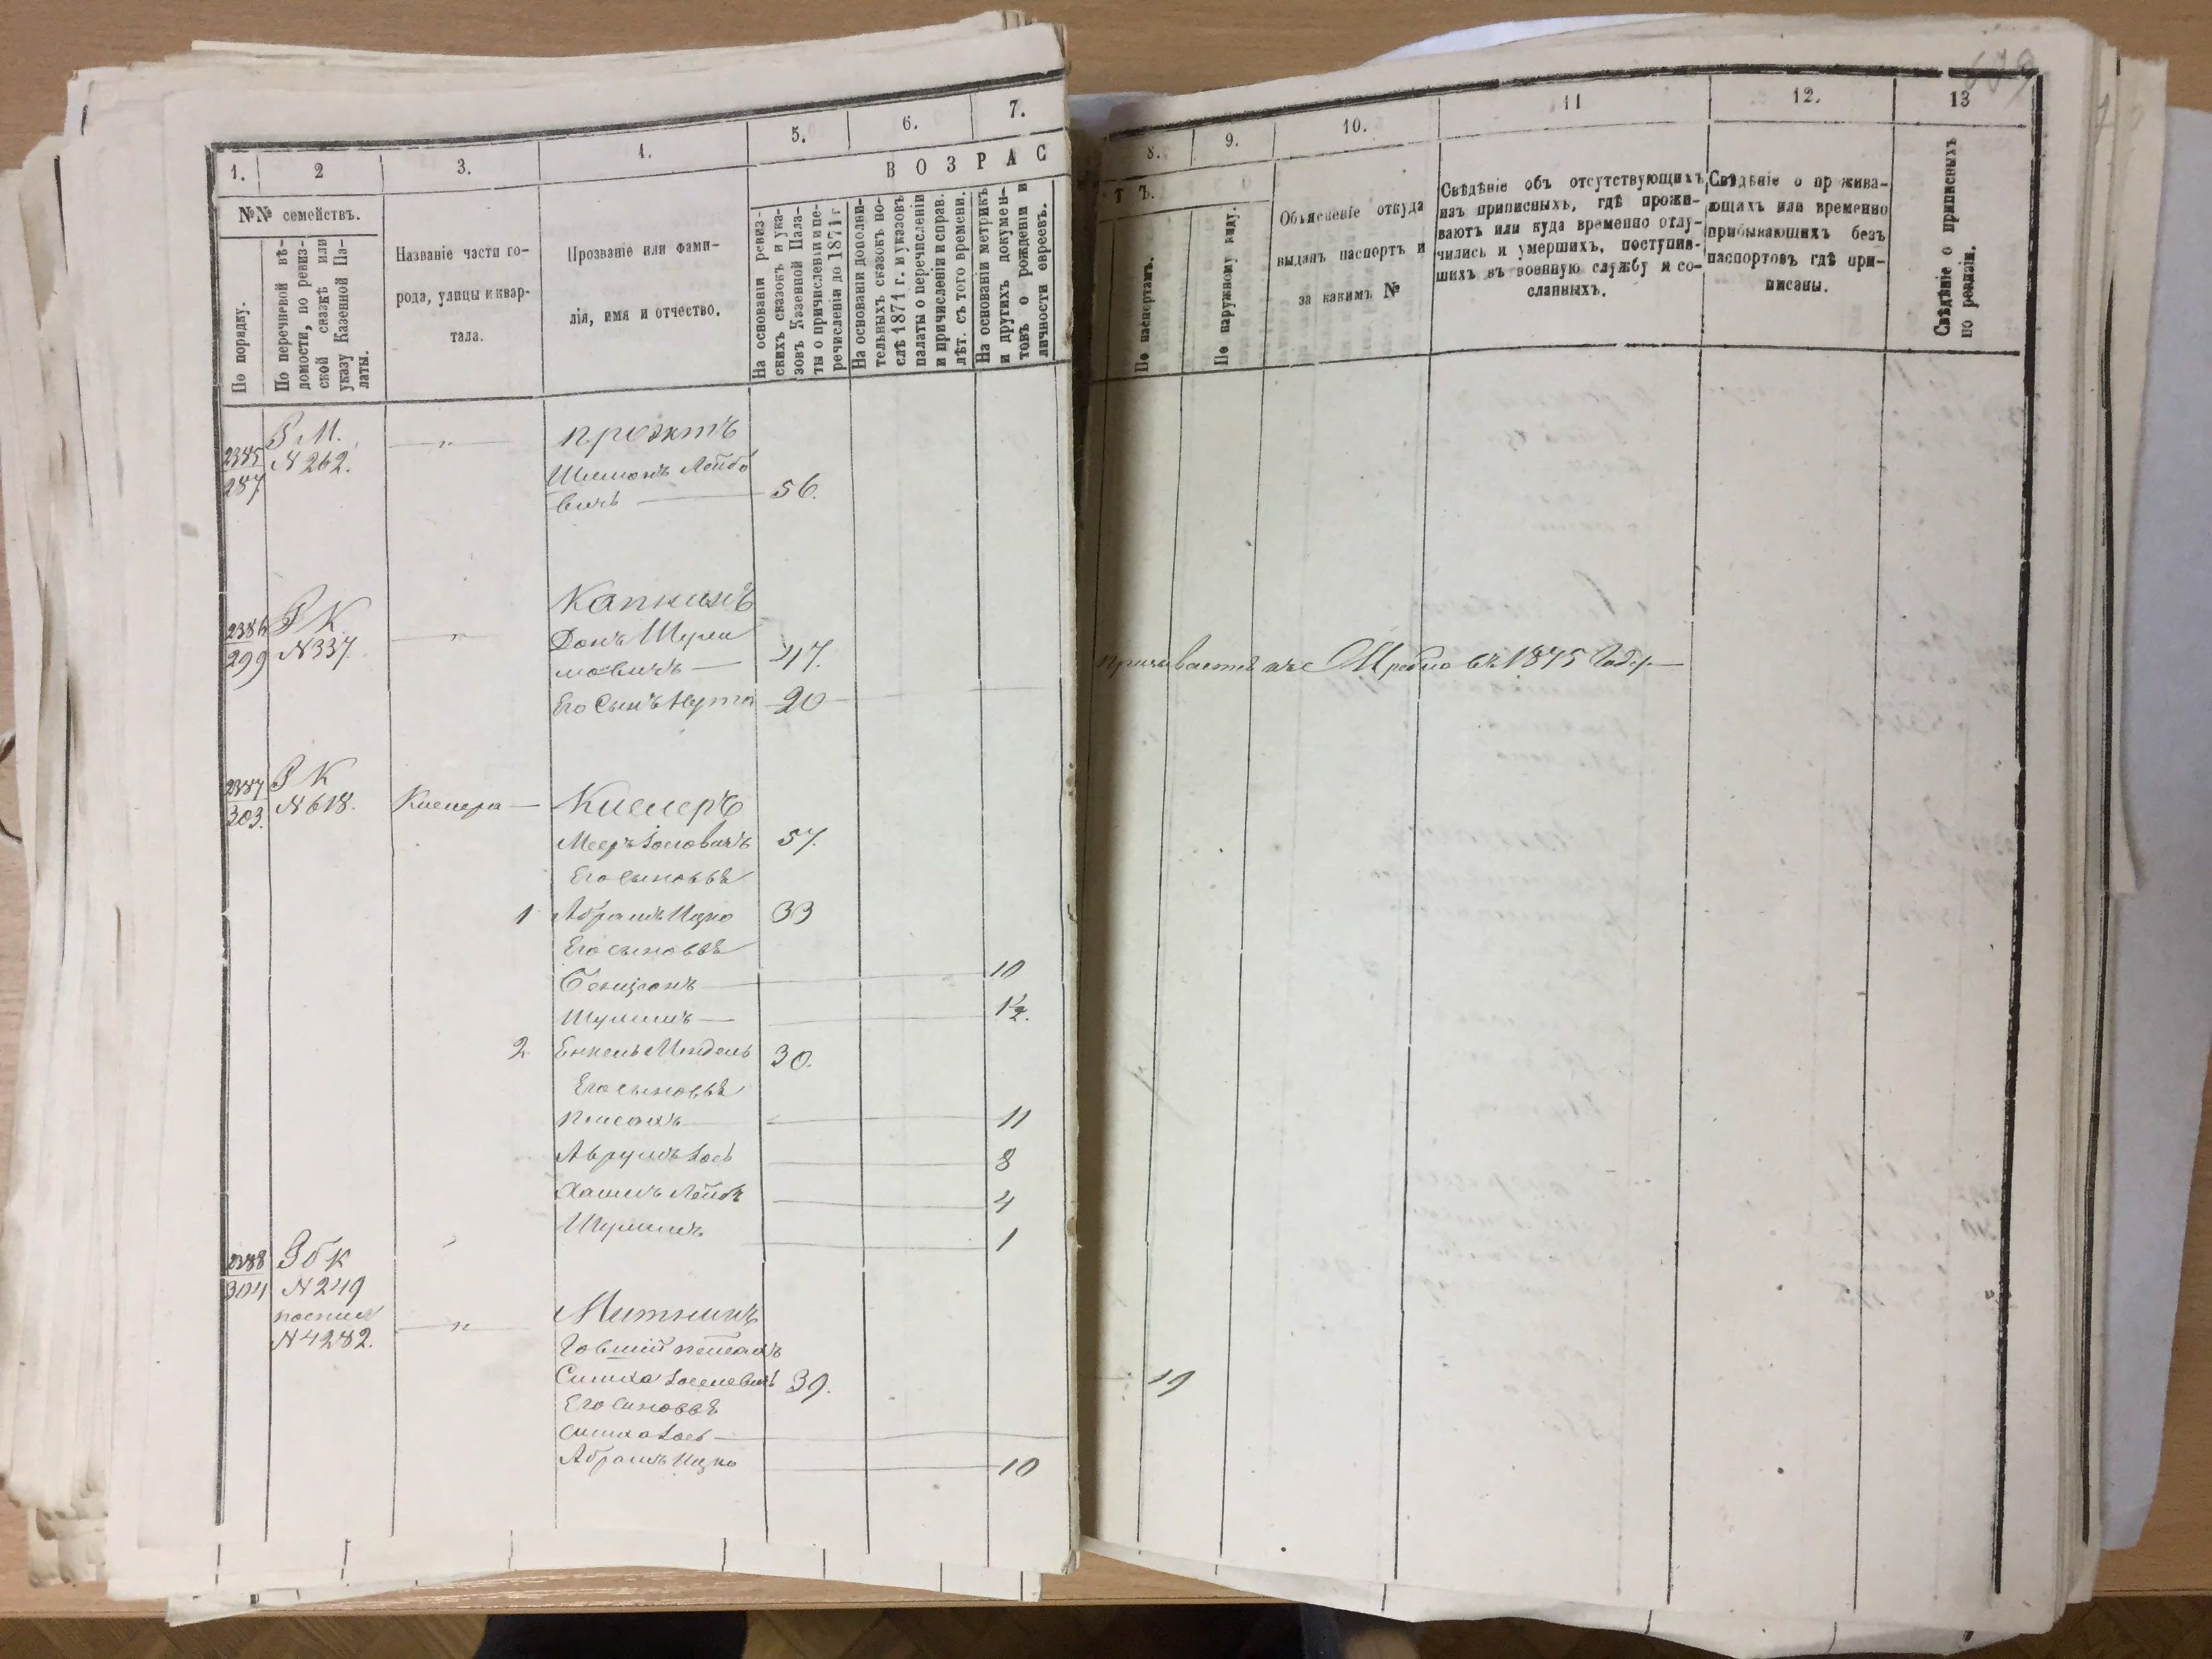 1. 2 3. 4. 5. 6. 7.
ВОЗРАС
№№ семействъ.
По порядку.
По перечневой вѣ-
домости, по ревиз-
ской сказкѣ или
указу Казенной Па-
латы.
Названіе части го-
рода, улицы и квар-
тала.
Прозваніе или фами-
лія, имя и отчество.
На основаніи ревиз-
скихъ сказокъ и ука-
зовъ Казенной Пала-
ты о причисленіи и пе-
речисленіи до 1871 г
На основаніи дополни-
тельныхъ сказокъ по-
слѣ 1871 г. и указовъ
палаты о перечисленіи
и причисленіи и справ.
лѣт. съ того времени.
На основаніи метрикъ
и другихъ докумен-
товъ о рожденіи и
личности евреевъ.
2385 Р М.
287 N 262. — " — Проэктъ
Шимонъ Лейбо
вичъ — 56.
2386 Р К
299 N 337. — " — Капкинъ
Донъ Шули
мовичъ — 47.
Его Сынъ Нута 20
2387 Р К
303. N 618. Кислера — Кислеръ
Мееръ Іосовичъ 57.
Его сыновьѣ
1 Абрамъ Ицко 33
Его сыновьѣ
Бенціонъ — 10
Шулимъ — 1/2.
2 Енкель Мендель 30.
Его сыновьѣ
Пейсахъ — 11
Аврумъ Іось 8
Хаимъ Лейбъ 4
Шулимъ 1
2388
304 N 249
N 4282. — " — Митникъ
Симха 39.
Его Сыновьѣ
Симха Іось —
Абрамъ Ицко — 10
8. 9. 10. 11 12. 13
ТЪ.
По паспортамъ.
По наружному виду.
Объясненіе откуда
выданъ паспортъ и
за какимъ №
Свѣдѣніе объ отсутствующихъ
изъ приписныхъ, гдѣ прожи-
ваютъ или куда временно отлу-
чились и умершихъ, поступив-
шихъ въ военную службу и со-
сланныхъ.
Свѣдѣніе о прожива-
ющихъ или временно
прибывающихъ безъ
паспортовъ гдѣ при-
писаны.
Свѣдѣніе о приписныхъ
по ревизіи.
въ 1875
19